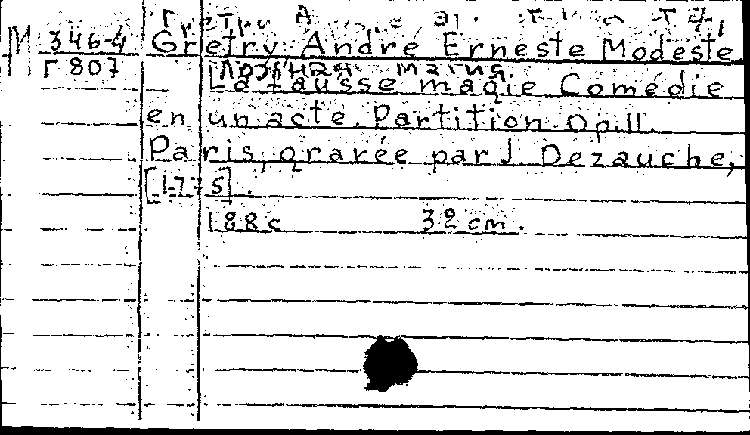 Гретри А
М 346-4 Gretry Andre Erneste Modeste
Г 807 Ложная магия
La fausse magie Comédie
en un acte. Partition Op. 11.
Paris, gravée par J. Dezauche,
[1775].
188 c 32 cm.